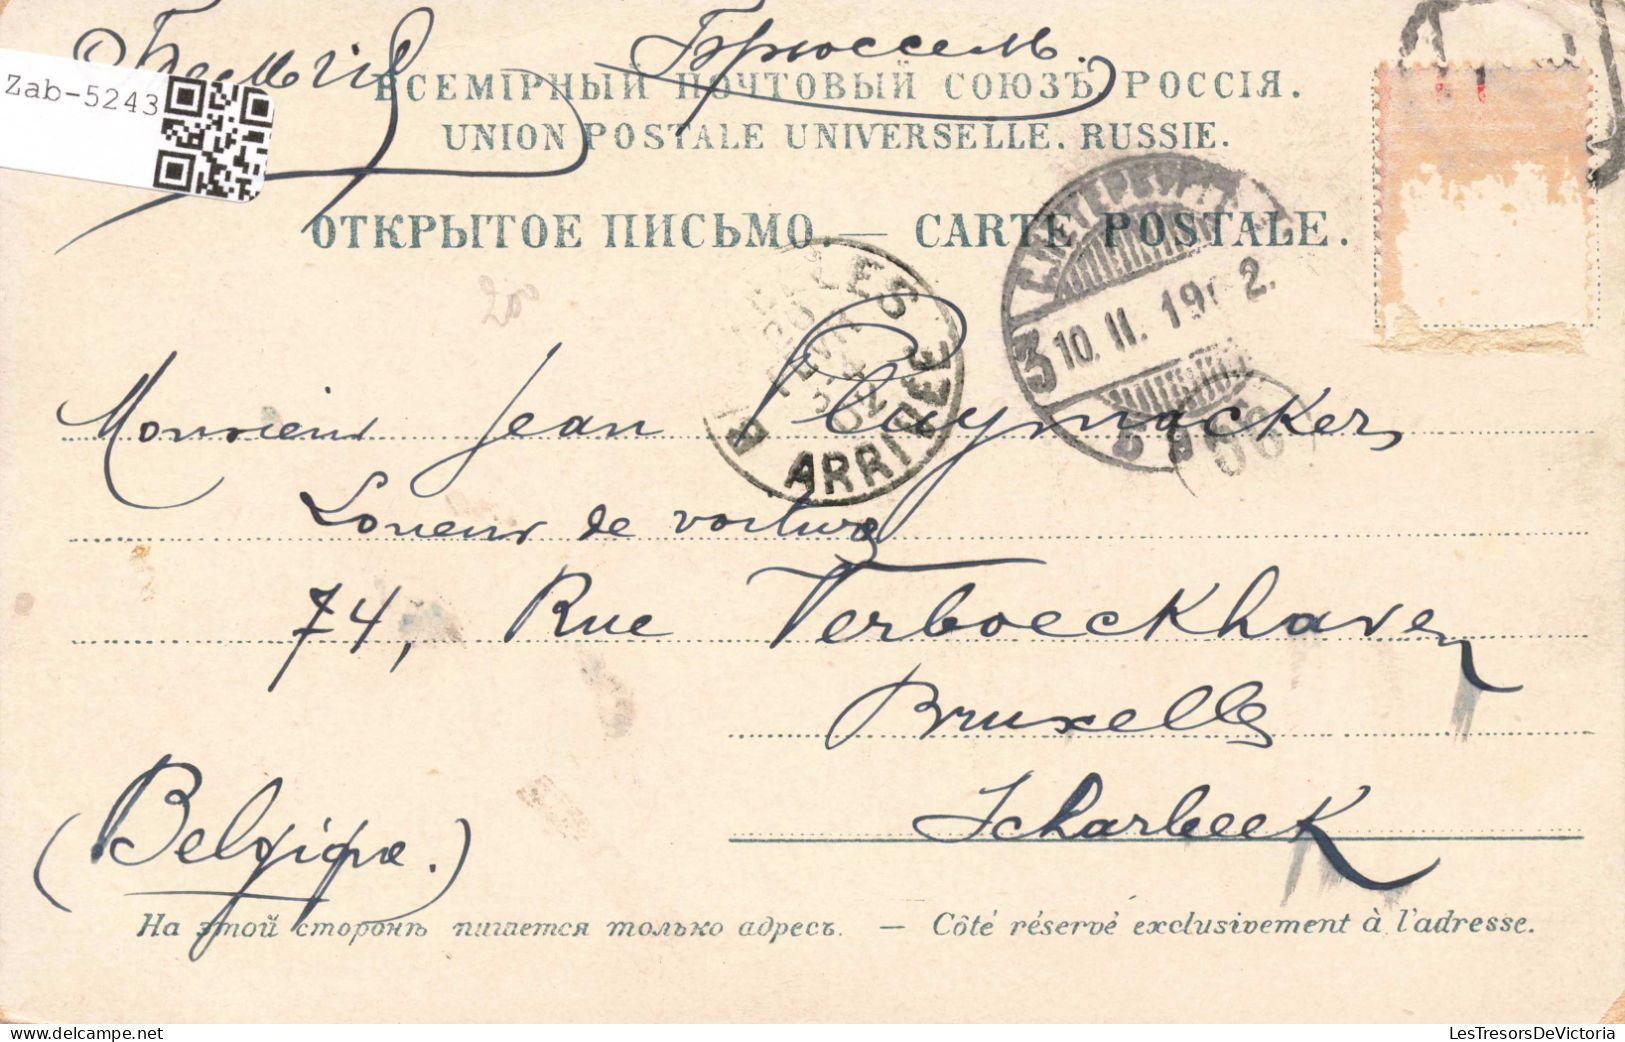 Бельгія Брюссель.
Zab-5243
ВСЕМІРНЫЙ ПОЧТОВЫЙ СОЮЗЪ. РОССІЯ.
UNION POSTALE UNIVERSELLE. RUSSIE.
ОТКРЫТОЕ ПИСЬМО. — CARTE POSTALE.
3 10. II. 1902.
ARRIVEE
Monsieur Jean Pluymackers
Loueur de voitures
74, Rue Verboeckhaven
Bruxelles
Scharbeek
(Belgique.)
На этой сторонѣ пишется только адресъ. — Côté réservé exclusivement à l'adresse.
LesTresorsDeVictoria